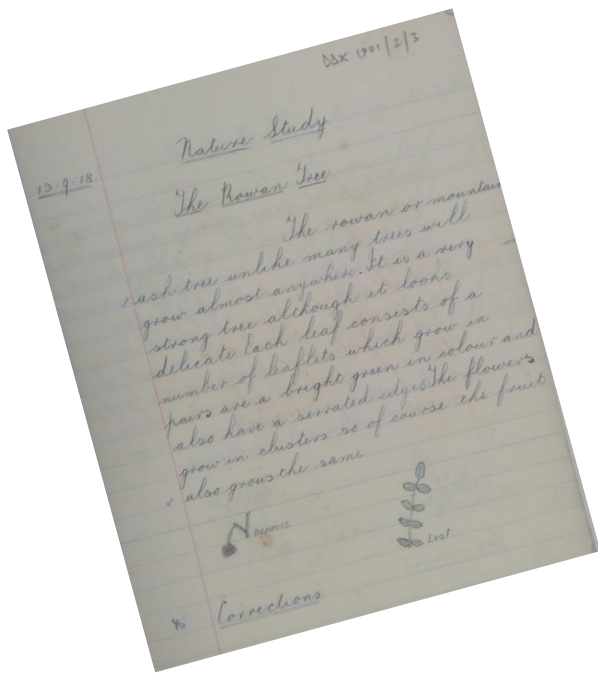 DDX 1901/2/3
Nature Study
13-9-18
The Rowan Tree
The rowan or mountain
ash tree unlike many trees will
grow almost anywhere. It is a very
strong tree although it looks
delicate. Each leaf consists of a
number of leaflets which grow in
pairs are a bright green in colour and
also have a serrated edges. The flowers
grow in clusters so of course the fruit
also grows the same
Berries
Leaf
Corrections.